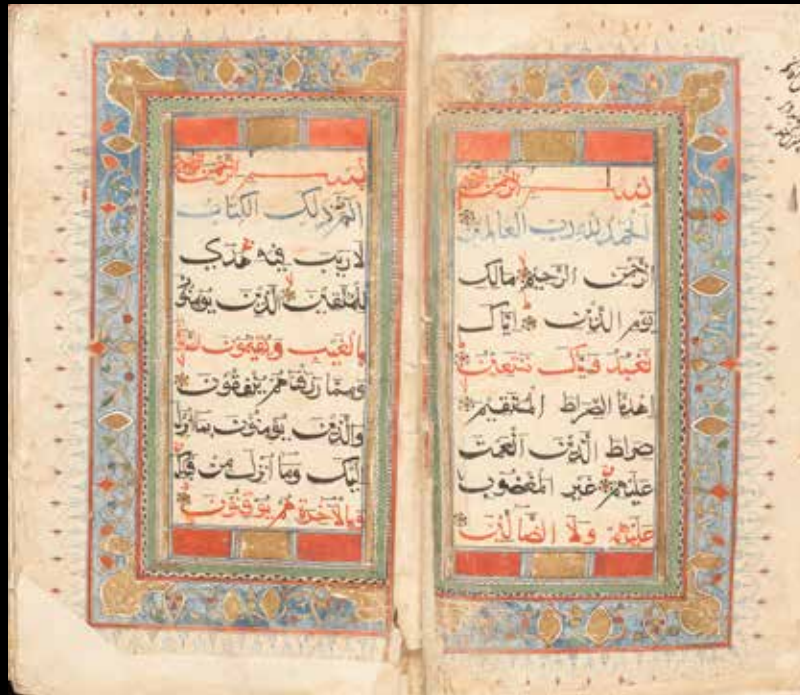 بسم الله الرحمن الرحيم
الحمد لله رب العالمين
الرحمن الرحيم مالك
يوم الدين اياك
نعبد و اياك نستعين
اهدنا الصراط المستقيم
صراط الذين انعمت
عليهم غير المغضوب
عليهم ولا الضالين
بسم الله الرحمن الرحيم
الم ذلك الكتاب
لا ريب فيه هدى
للمتقين الذين يؤمنون
بالغيب ويقيمون الصلوة
ومما رزقناهم ينفقون
والذين يؤمنون بما انزل
اليك وما انزل من قبلك
وبالآخرة هم يوقنون